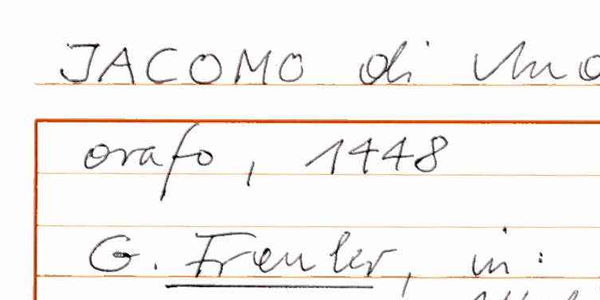 JACOMO di
orafo, 1448
G. Freuler, in: